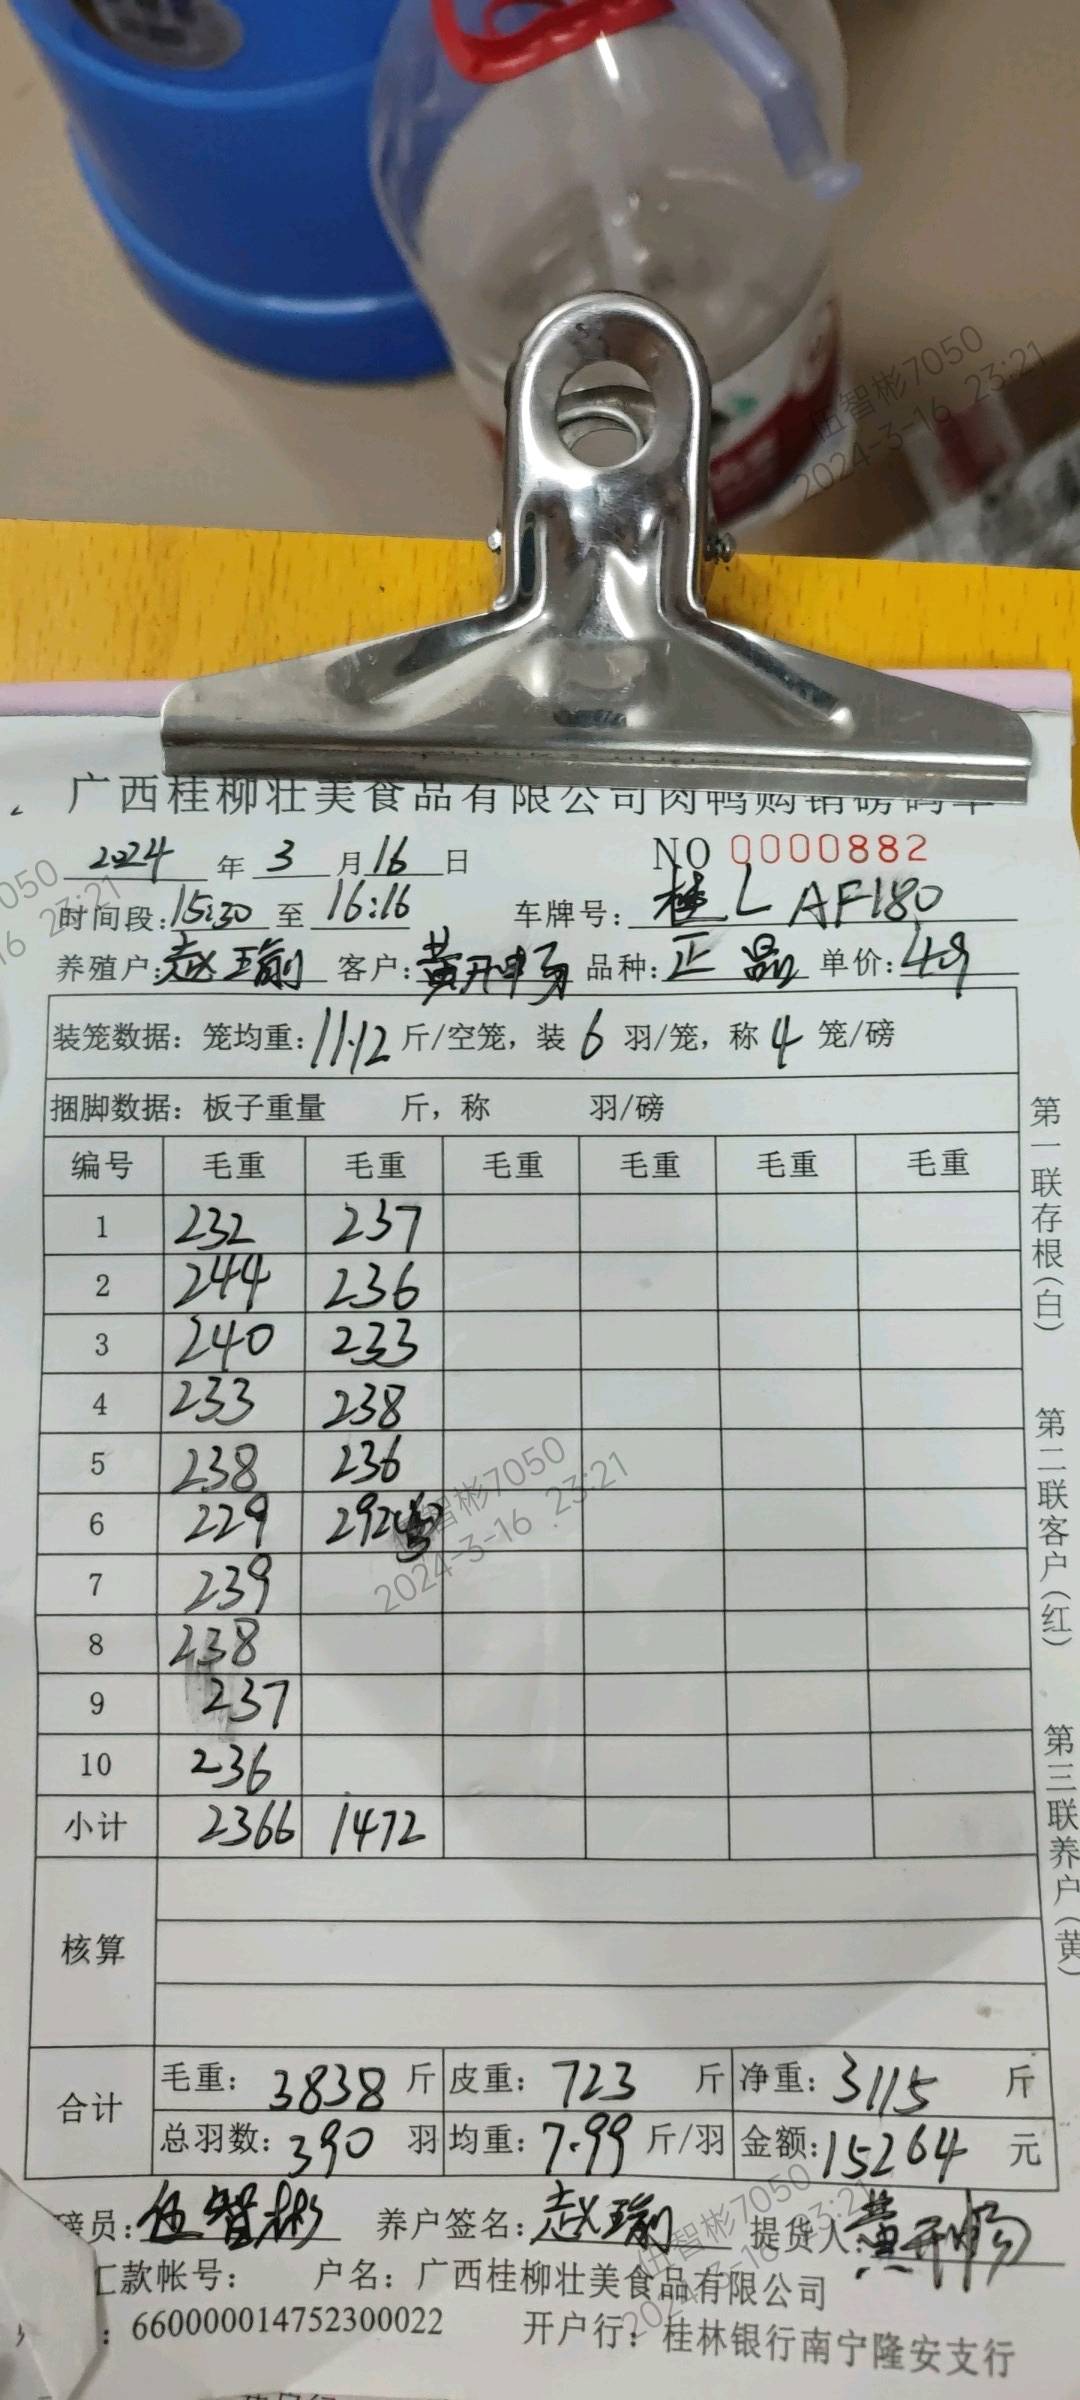 广西桂柳壮美食品有限公司肉鸭购销磅码单
2024 年 3 月 16 日 NO 0000882
时间段: 15:30 至 16:16 车牌号: 桂L AF180
养殖户: 赵瑞 客户: 黄开畅 品种: 正品 单价: 4.9
装笼数据: 笼均重: 11.12 斤/空笼, 装 6 羽/笼, 称 4 笼/磅
捆脚数据: 板子重量 斤, 称 羽/磅
编号 毛重 毛重 毛重 毛重 毛重 毛重
1 232 237
2 244 236
3 240 233
4 233 238
5 238 236
6 229 292
7 239
8 238
9 237
10 236
小计 2366 1472
核算
合计 毛重: 3838 斤 皮重: 723 斤 净重: 3115 斤
总羽数: 390 羽 均重: 7.99 斤/羽 金额: 15264 元
磅员: 伍智彬 养户签名: 赵瑞 提货人: 黄开畅
汇款帐号: 户名: 广西桂柳壮美食品有限公司
: 660000014752300022 开户行: 桂林银行南宁隆安支行
第一联存根(白) 第二联客户(红) 第三联养户(黄)
伍智彬7050
2024-3-16 23:21
伍智彬7050
2024-3-16 23:21
伍智彬7050
2024-3-16 23:21
7050
16 23:21